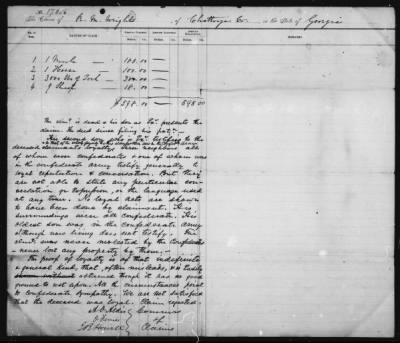 No. 17206
The Claim of R. M. Wright, of Chattooga Co. in the State of Georgia
NATURE OF CLAIM. REMARKS.
1 1 Mule 100.00 —
2 1 Horse 100.00 —
3 3000 lbs of Pork 300.00 —
4 9 Sheep 18.00 —
$598.00 598.00
The clmt is dead & his son as presents the
claim. He died since filing his
His second son who is testifies to the
deceased claimants loyalty. Three neighbors all
of whom were confederates & one of whom was
in the confederate army testify generally to
loyal reputation & conversation. But they
are not able to state any particular con-
versation or expression, or the language used
at any time. No loyal acts are shown
to have been done by claimant. His
surroundings were all confederate. His
oldest son was in the confederate army
although now living does not testify. The
clmt was never molested by the confederates
& never lost any property by them.
The proof of loyalty is of that indefinite
& general kind, that, often misleads, & is
obtained though it has no good
ground to rest upon. All the circumstances point
to confederate sympathy. We are not satisfied
that the deceased was loyal. Claim rejected.
A. O. Aldis Commrs
of
Jas B Howell Claims